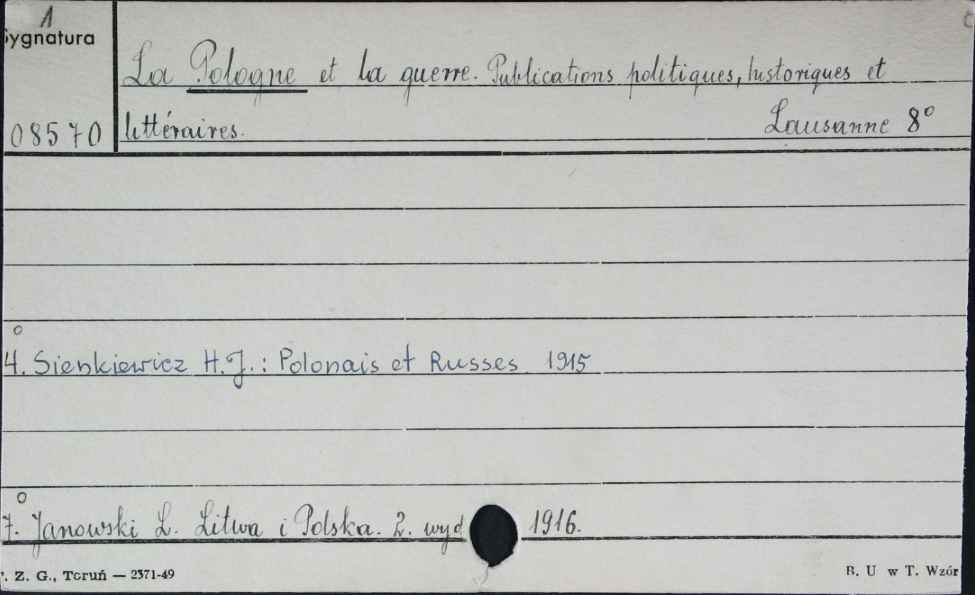 1
Sygnatura
La Pologne et la guerre. Publications politiques, historiques et
08570 littéraires. Lausanne 8°
o
4. Sienkiewicz H.J.: Polonais et Russes 1915
o
7. Janowski L. Litwa i Polska. 2. wyd 1916.
. Z. G., Toruń — 2371-49 B. U w T. Wzór